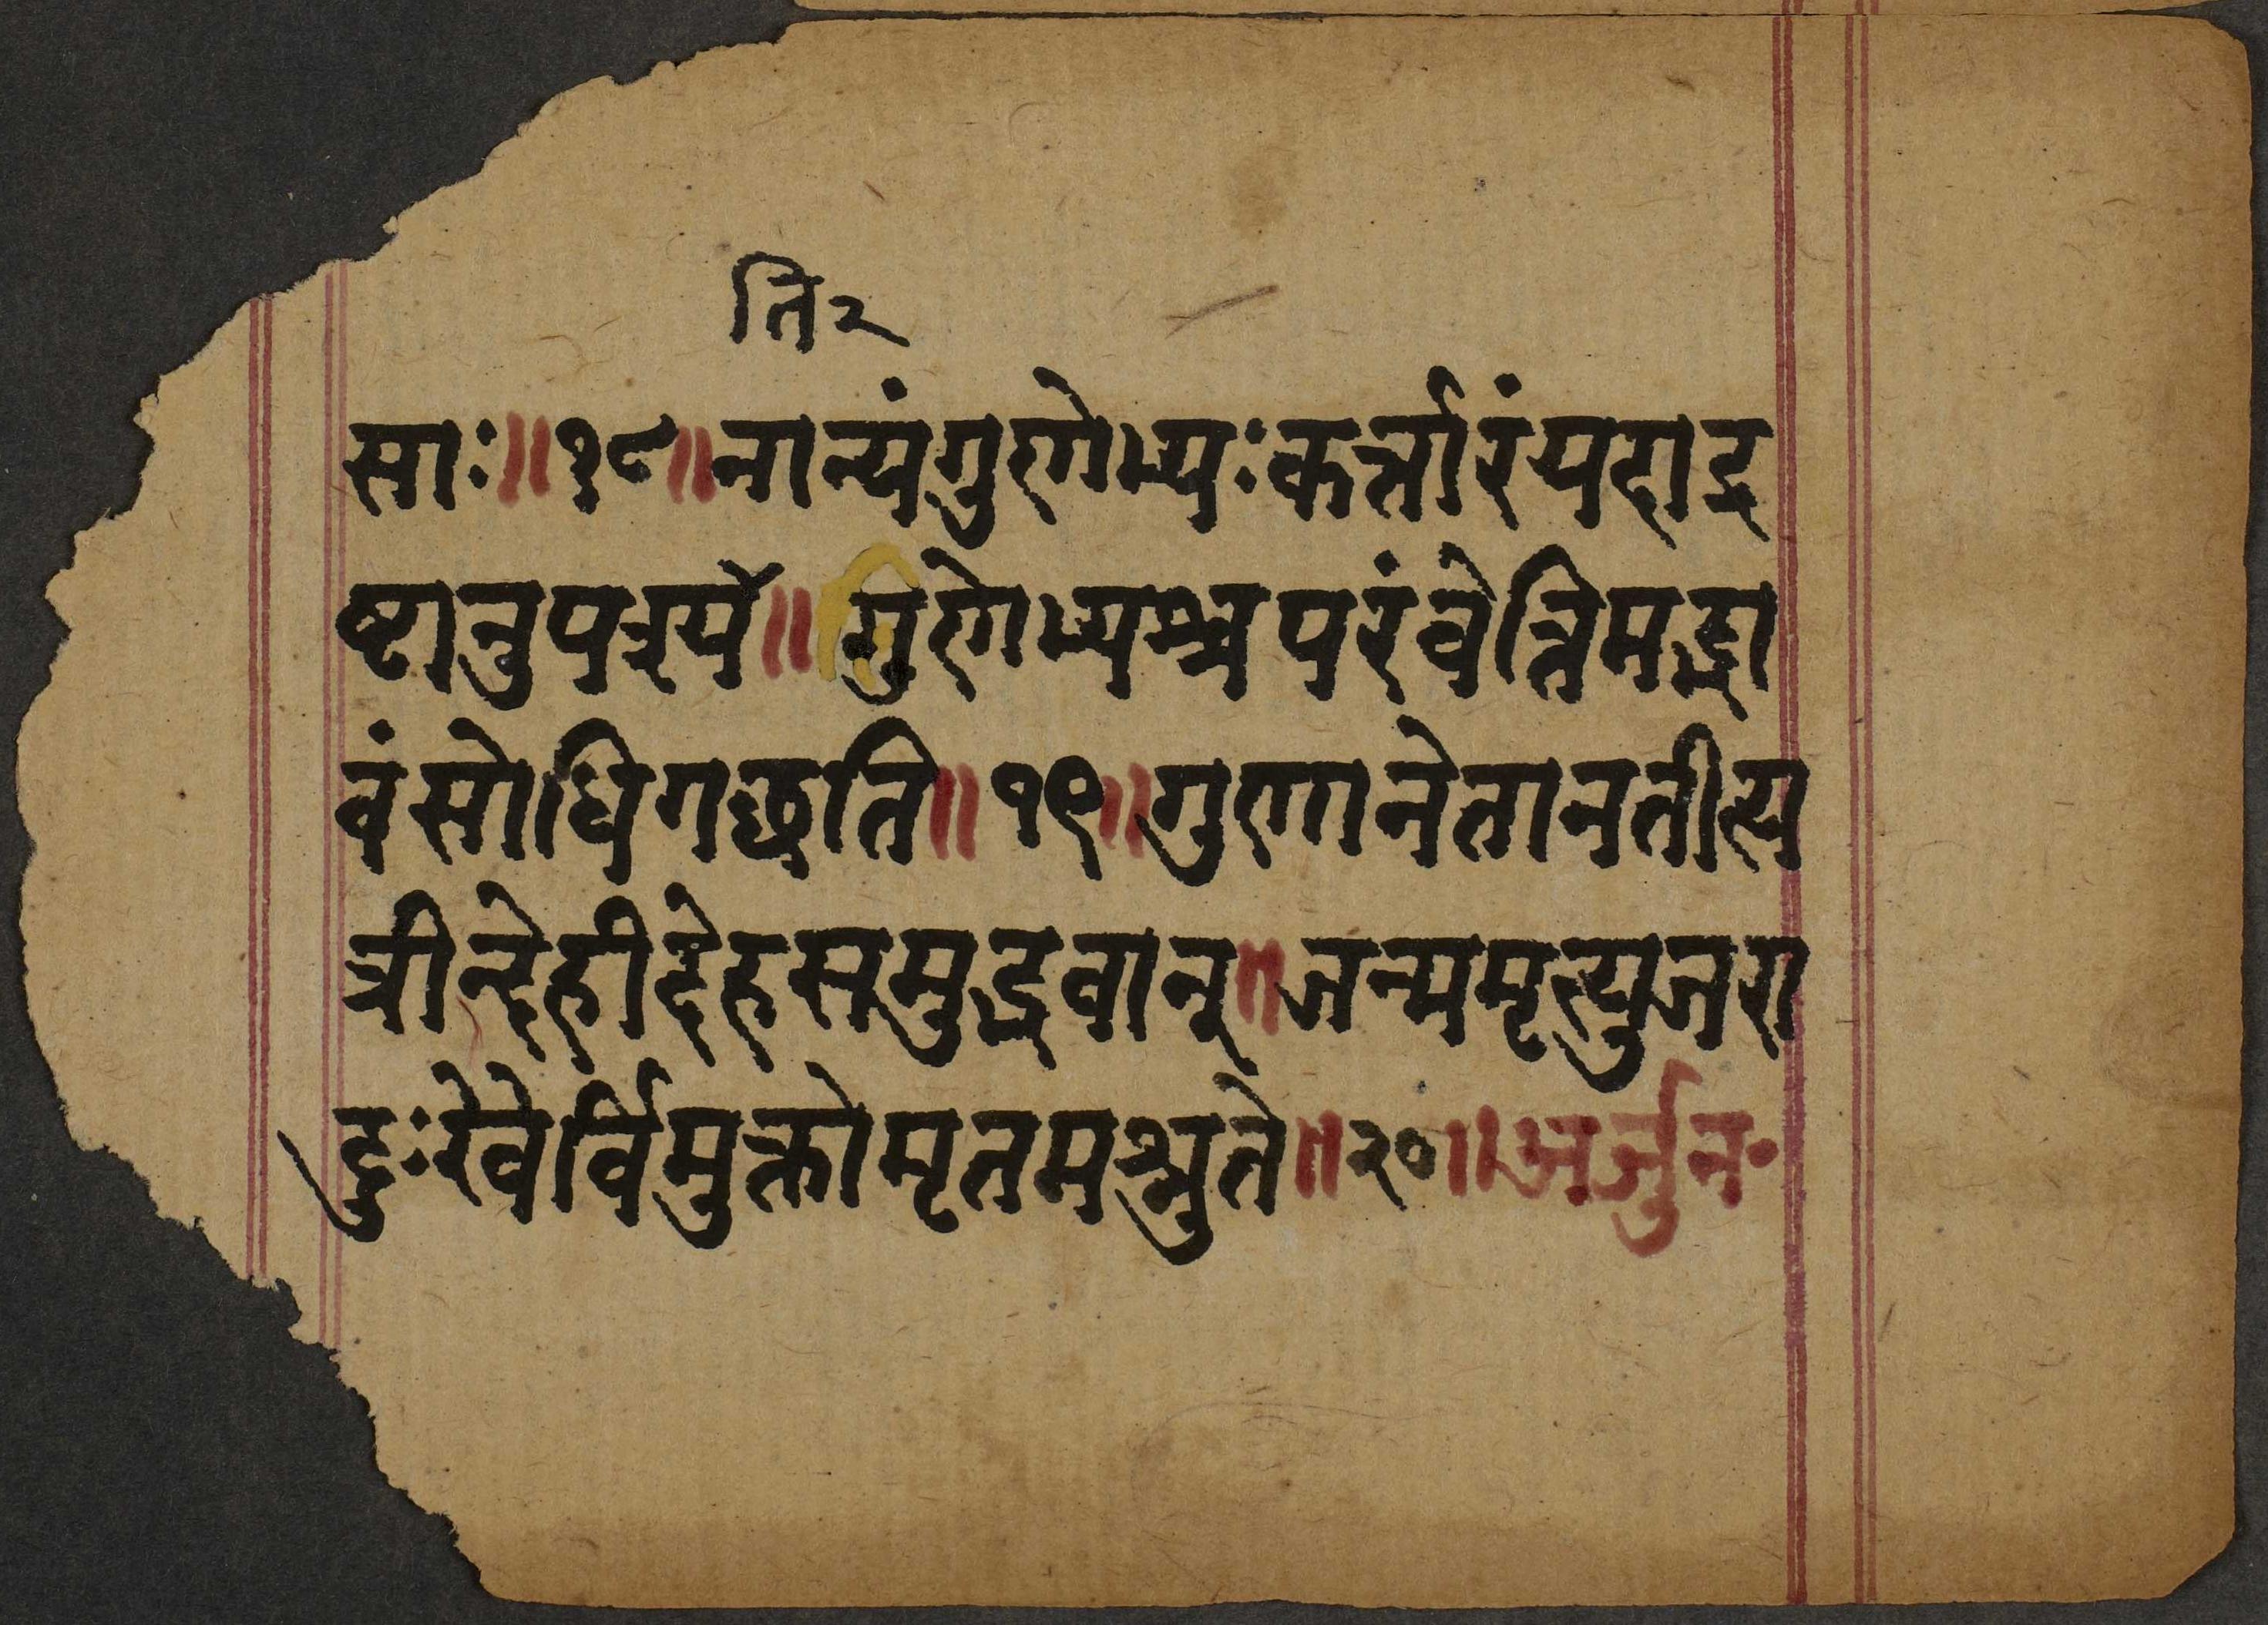 ति२
साः॥१८॥नान्यंगुणेभ्यःकर्त्तारंयदाद्र
ष्टानुपश्यये॥गुणेभ्यश्चपरंवेत्तिमद्भा
वंसोधिगछति॥१९॥गुणानेतानतीत्य
त्रीन्देहीदेहसमुद्भवान्॥जन्ममृत्युजरा
दुःखेर्विमुक्तोमृतमश्नुते॥२०॥अर्जुन॰